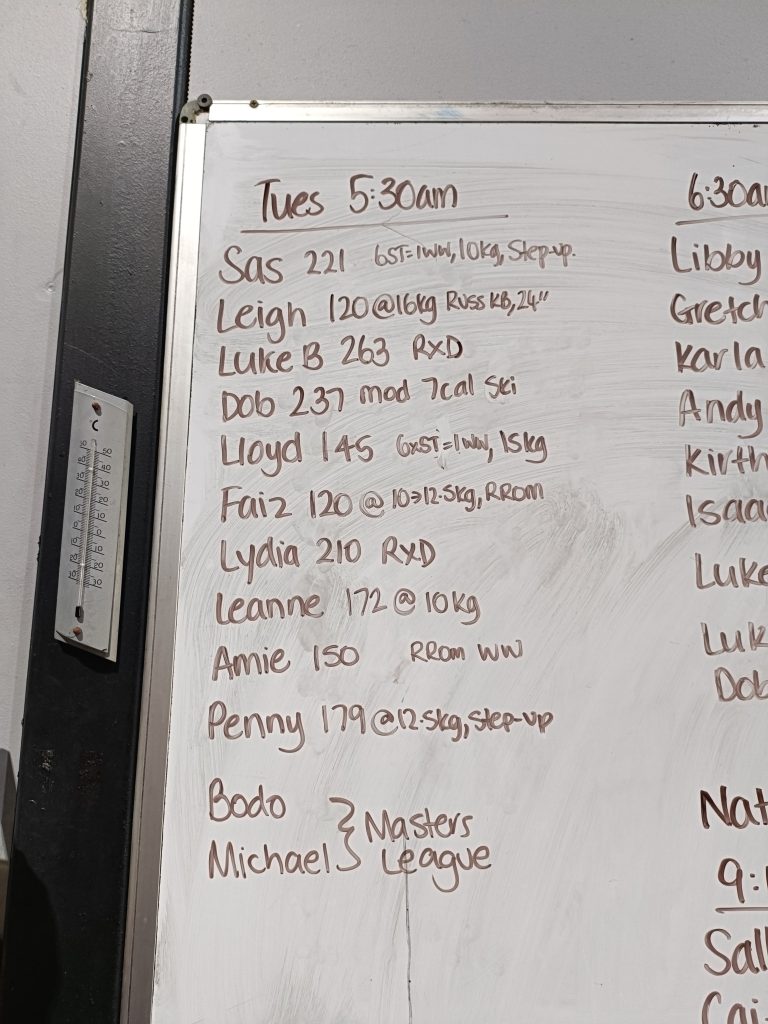 Tues 5:30am
Sas 221 6ST=1WW, 10kg, Step-up.
Leigh 120@16kg Russ KB, 24"
Luke B 263 RXD
Dob 237 mod 7cal Ski
Lloyd 145 6xST=1WW, 15kg
Faiz 120 @ 10→12.5kg, RROM
Lydia 210 RXD
Leanne 172 @ 10kg
Amie 150 RROM WW
Penny 179 @ 12.5kg, step-up
Bodo
Michael } Masters League
6:30a
Libby
Gretch
Karla
Andy
Kirth
Isaa
Luke
Luk
Dob
Nat
9:
Sall
Cai
°C